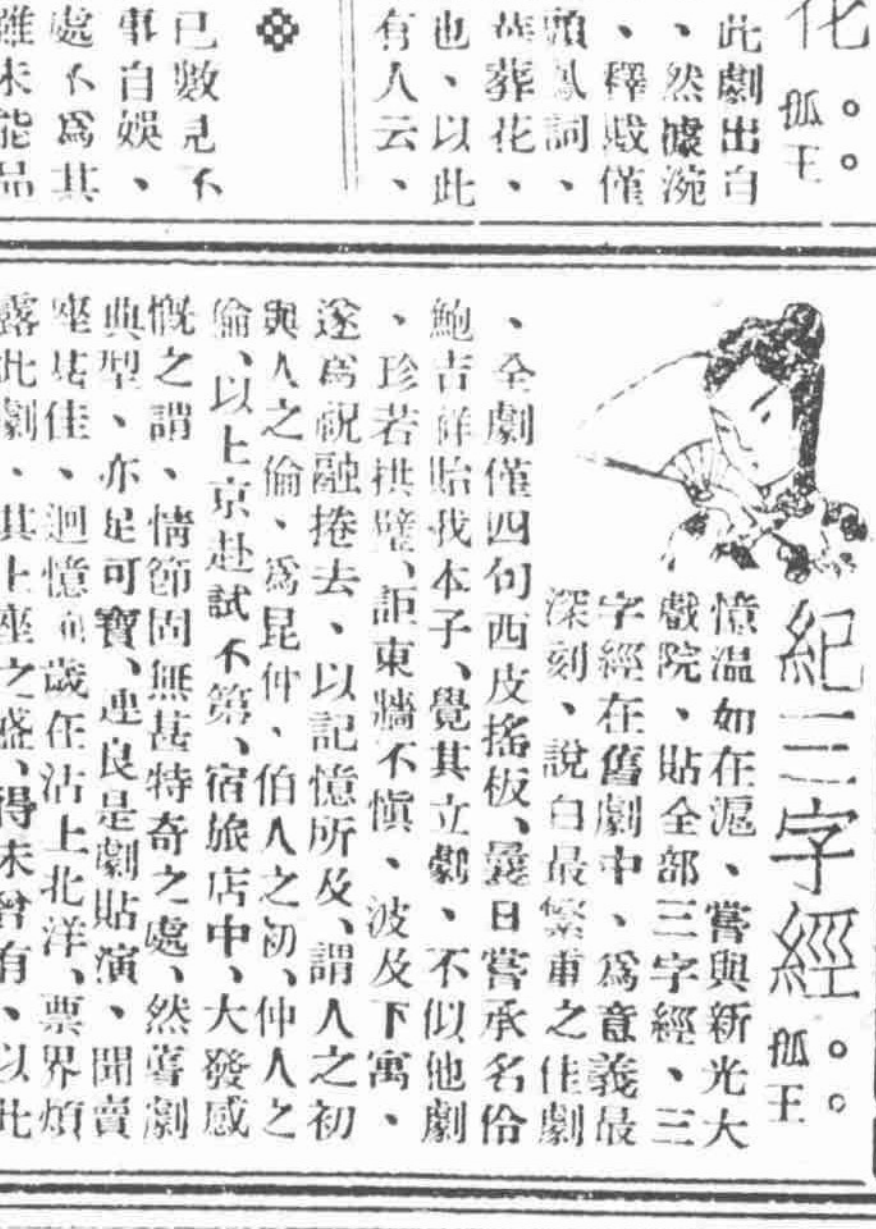 化。。孤王
此劇出白
、然
、釋 僅
頭鳳詞、
葬花、
也、以此
有人云、
已數見不
事自娛、
處不爲其
雖未能品
紀三字經。。孤王
憶温如在滬、嘗與新光大
戲院、貼全部三字經、三
字經在舊劇中、爲意義最
深刻、說白最繁重之佳劇
、全劇僅四句西皮搖板、曩日嘗承名伶
鮑吉祥貽我本子、覺其立劇、不似他劇
、珍若拱璧、詎東牆不愼、波及下寓、
遂爲祝融捲去、以記憶所及、謂人之初
與人之倫、爲昆仲、伯人之初、仲人之
倫、以上京赴試不第、宿旅店中、大發感
慨之謂、情節固無甚特奇之處、然舊劇
典型、亦足可寶、連良是劇貼演、聞賣
座甚佳、迴憶 歲在沽上北洋、票界煩
露此劇、其上座之盛、得未曾有、以此